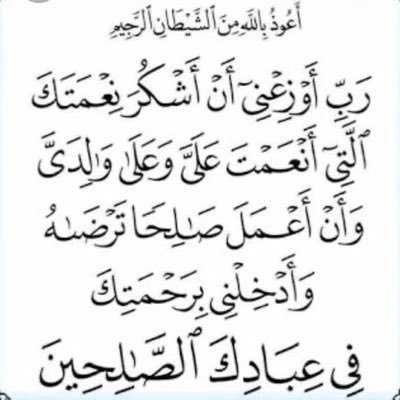 أَعُوذُ بِاللَّهِ مِنَ ٱلشَّيْطَانِ ٱلرَّجِيمِ
رَبِّ أَوْزِعْنِىٓ أَنْ أَشْكُرَ نِعْمَتَكَ
ٱلَّتِىٓ أَنْعَمْتَ عَلَىَّ وَعَلَىٰ وَٰلِدَىَّ
وَأَنْ أَعْمَلَ صَـٰلِحًا تَرْضَىٰهُ
وَأَدْخِلْنِى بِرَحْمَتِكَ
فِى عِبَادِكَ ٱلصَّـٰلِحِينَ